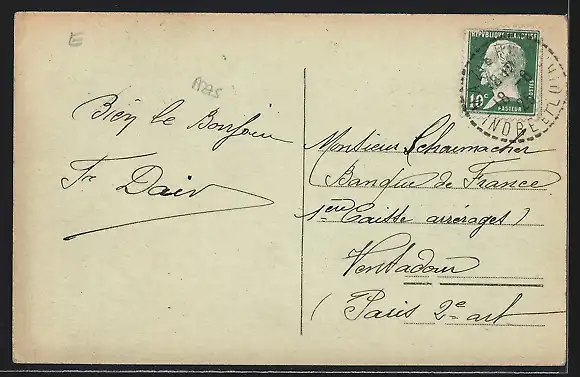 E
Bien le Bonjour
Fr David
REPUBLIQUE FRANCAISE
10c
POSTES
PASTEUR
INDRE ET L
Monsieur Schoumacher
(Banque de France
1ere Caisse arrérages)
Ventadour
(Paris 2e art